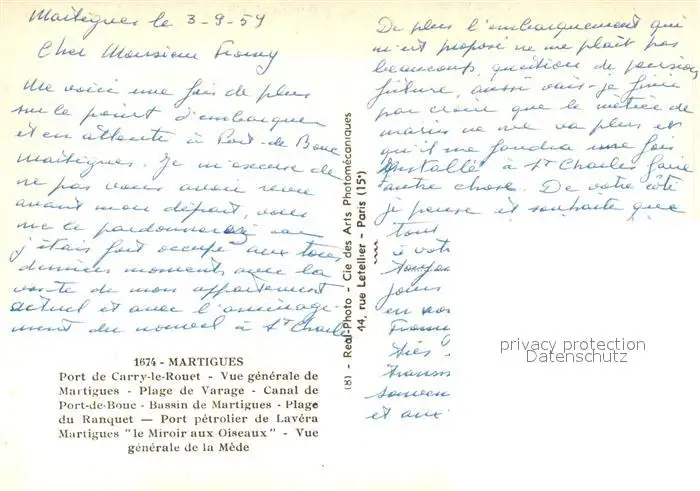 Martigues le 3-9-59
Cher Monsieur
Me voici une fois de plus
sur le point d'embarquer
et en attente à Port-de Bouc
Martigues. Je m'excuse de
ne pas vous avoir revu
avant mon départ, vous
me le pardonnerez car
j'étais fort occupé aux tous
derniers moments avec la
vente de mon appartement
actuel et avec l'aménage-
ment du nouveau à St Charles
De plus l'embarquement qui
m'est proposé ne me plaît pas
beaucoup, question de pension
future, aussi vais-je finir
par croire que le métier de
marin ne me va plus et
qu'il me faudra une fois
installé à St Charles faire
autre chose. De votre côté
je pense et souhaite que
tout
à vot
toujou
jours
en vo
Très
transm
souven
et aux
1674 - MARTIGUES
Port de Carry-le-Rouet - Vue générale de
Martigues - Plage de Varage - Canal de
Port-de-Bouc - Bassin de Martigues - Plage
du Ranquet — Port pétrolier de Lavéra
Martigues "le Miroir aux Oiseaux" - Vue
générale de la Mède
(8) - Real-Photo - Cie des Arts Photomécaniques
44, rue Letellier - Paris (15e)
privacy protection
Datenschutz